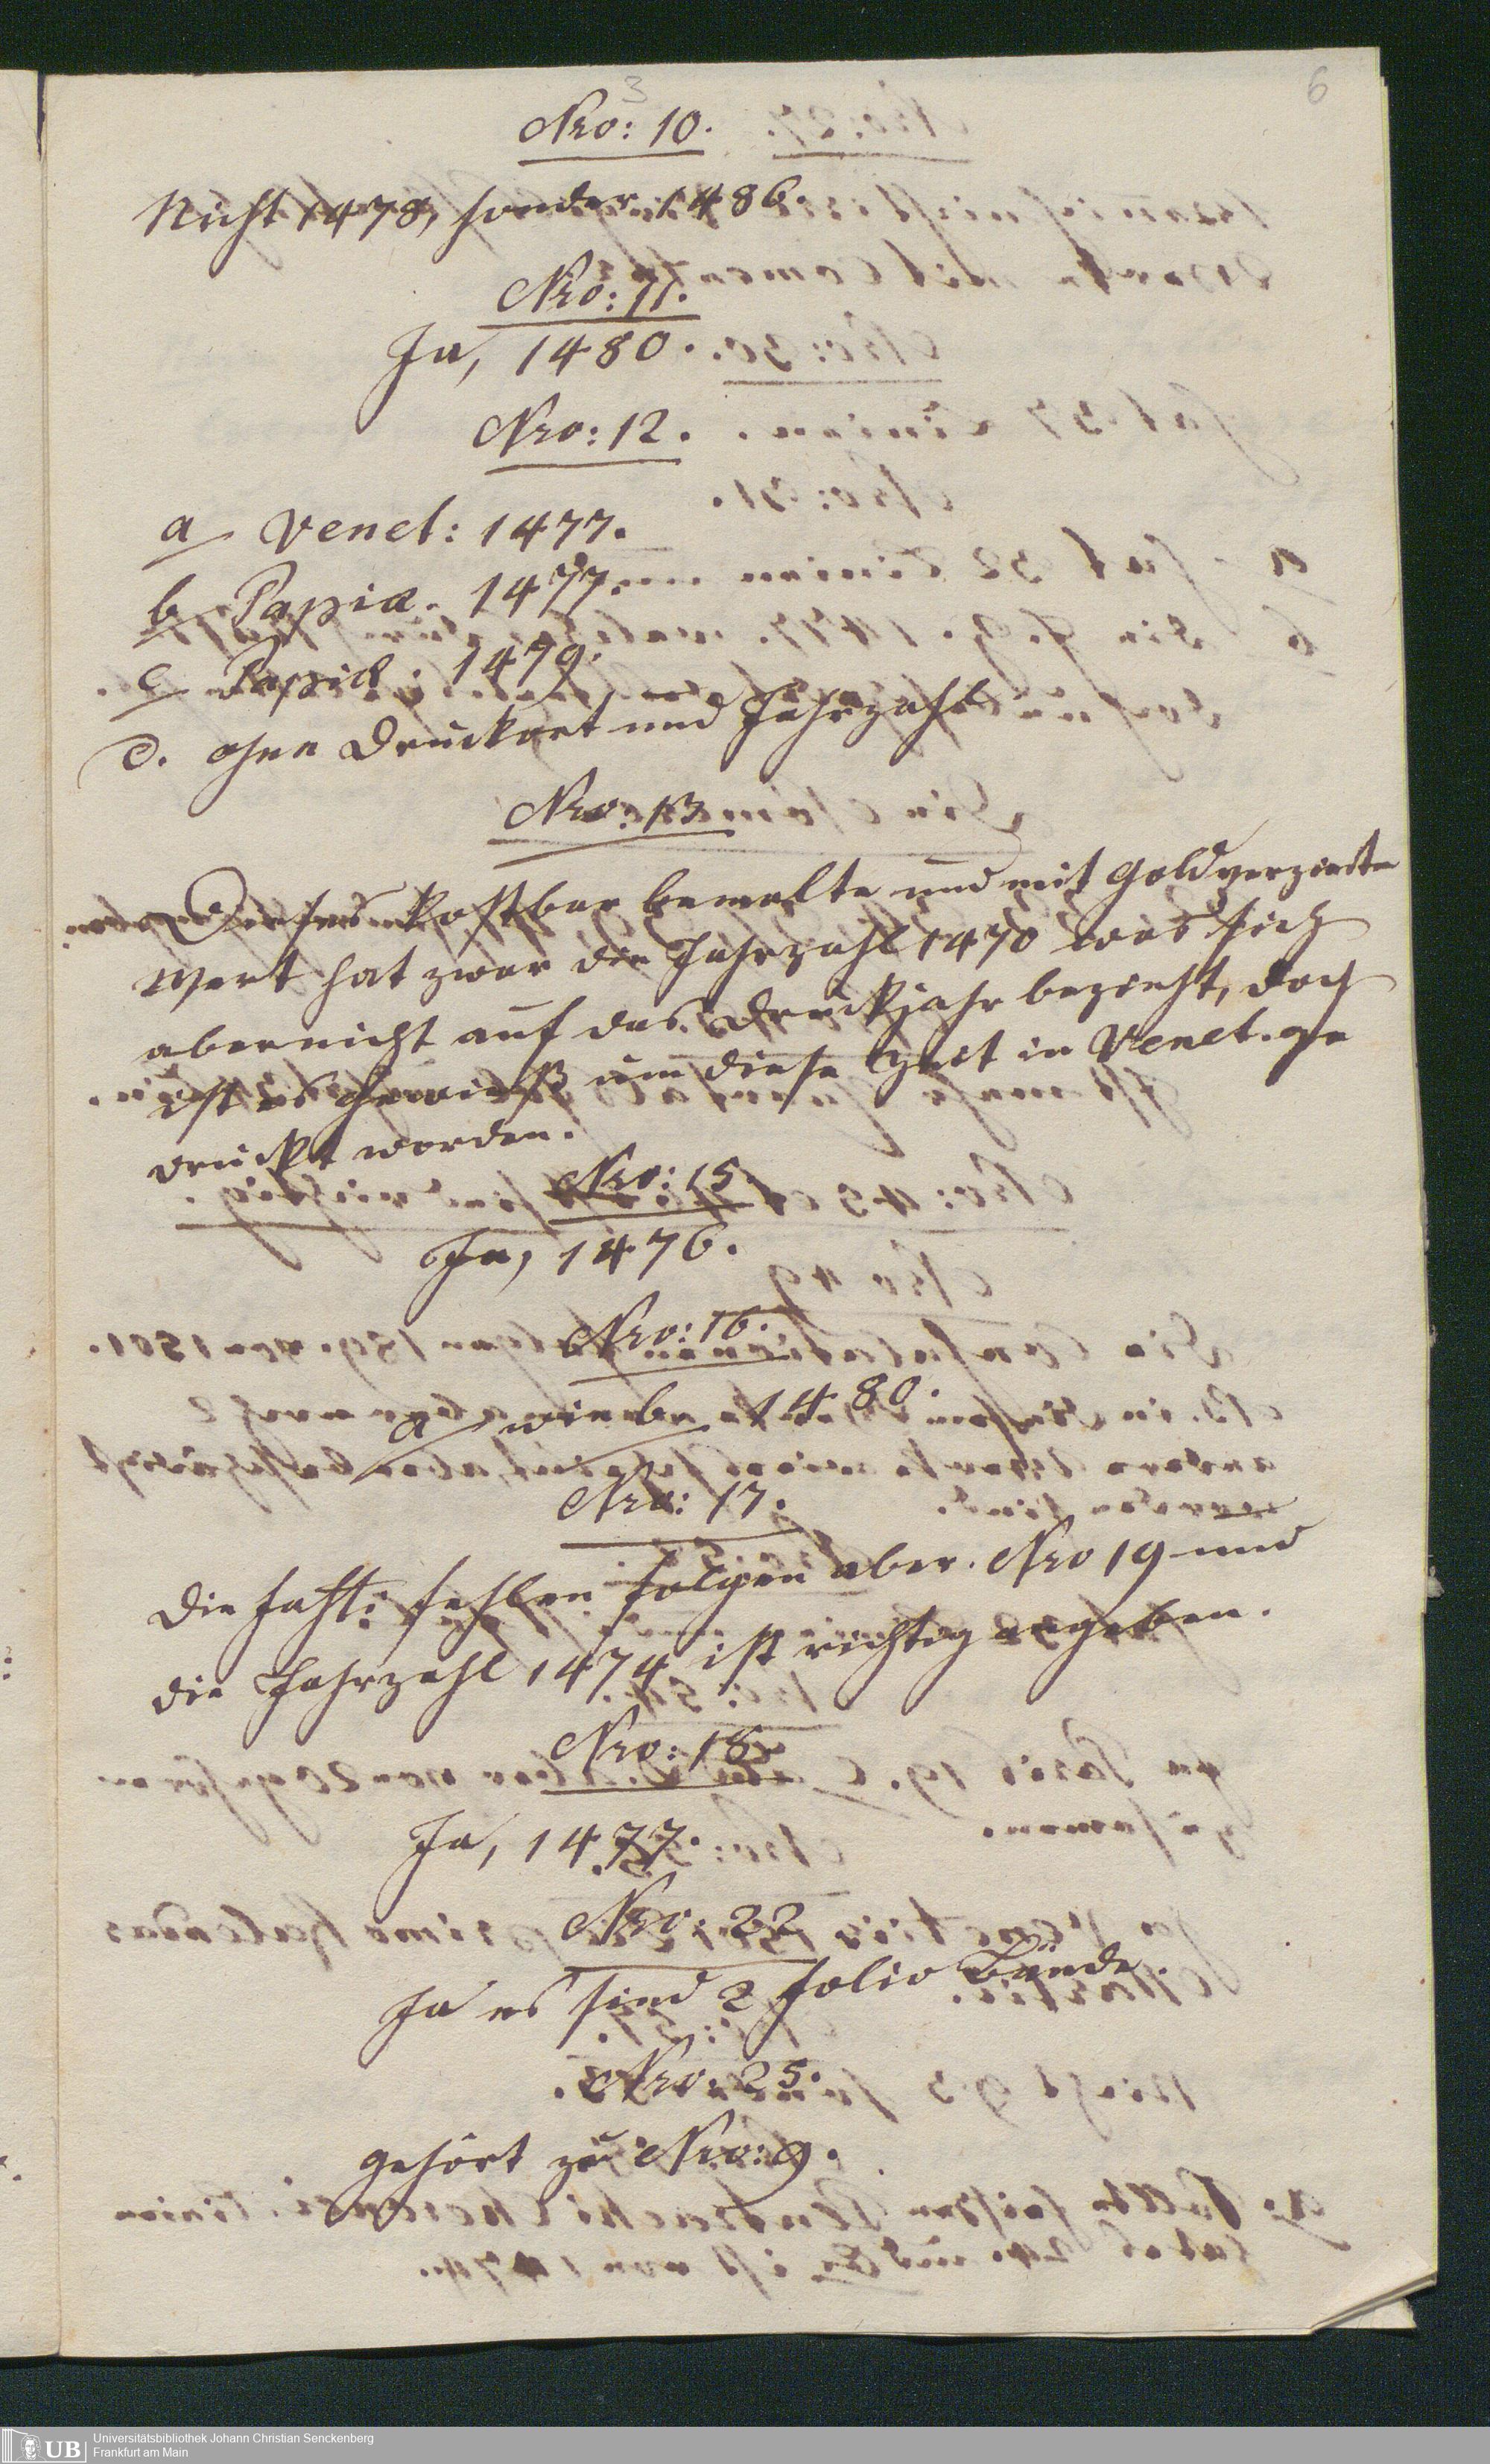 3
6
Nro: 10.
Nicht 1478, sonder 1486.
Nro: 11.
Ja, 1480.
Nro: 12.
a Venet: 1477.
b Papiæ. 1477.
c Papiæ. 1479.
d. ohne Druckort und Jahrzahl
Nro: 13
Dieses kostbar bemalte und mit Gold verzierte
Werk hat zwar die Jahrzahl 1470 was sich
aber nicht auf das Druckjahr bezieht, doch
ist es gewiß um diese Zeit in Venet. ge
druckt worden.
Nro: 15
Ja, 1476.
Nro: 16.
a wie b 1480.
Nro: 17.
Die fehlen folgen aber. Nro 19 und
die Jahrzahl 1474 ist richtig angeben.
Nro: 18
Ja, 1477.
Nro: 22
Ja es sind 2 folio Bände.
Nro: 25.
gehört zu Nro: 9.
UB
Universitätsbibliothek Johann Christian Senckenberg
Frankfurt am Main